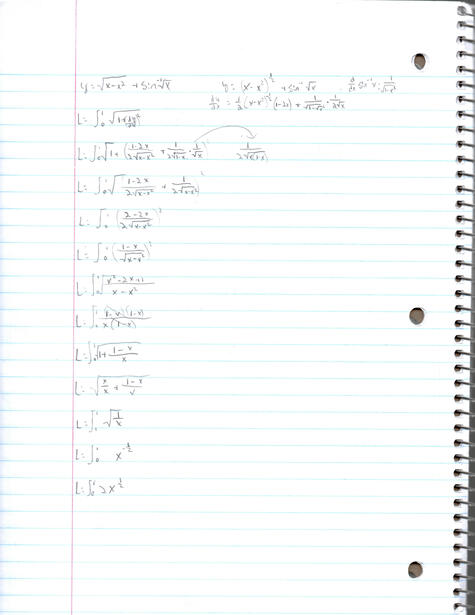 y = √(x-x²) + sin⁻¹√x    y = (x-x²)^(1/2) + sin⁻¹√x    d/dx sin⁻¹x = 1/√(1-x²)
dy/dx = 1/2 (x-x²)^(-1/2) (1-2x) + 1/√(1-√x²) · 1/2√x
L = ∫₀¹ √(1+(dy/dx)²
L = ∫₀¹ √(1 + (1-2x / 2√(x-x²) + 1 / 2√(1-x) · 1/√x)²    1 / 2√(x(1-x))
L = ∫₀¹ √((1-2x / 2√(x-x²) + 1 / 2√(x-x²))²
L = ∫₀¹ (2-2x / 2√(x-x²))²
L = ∫₀¹ (1-x / √(x-x²))²
L = ∫₀¹ √(x²-2x+1 / x-x²)
L = ∫₀¹ (1-x)(1-x) / x(1-x)
L = ∫₀¹ √(1 + 1-x / x)
L = √(x/x + 1-x / x)
L = ∫₀¹ √(1/x)
L = ∫₀¹ x^(-1/2)
L = ∫₀¹ 2x^(1/2)